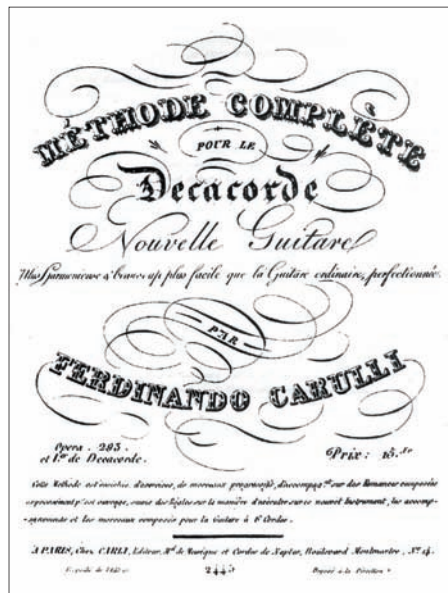 MÉTHODE COMPLÈTE
POUR LE
Decacorde
Nouvelle Guitare
Plus Harmonieuse & beaucoup plus facile que la Guitare ordinaire, perfectionnée
PAR
FERDINANDO CARULLI
Opera . 293 .
et 1.er de Decacorde .
Prix : 15.fr
Cette Méthode est enrichie d'exercices, de morceaux progressifs, d'accompag.ts sur des Romances composées
expressément p.r cet ouvrage, ornée des Règles sur la manière d'exécuter sur ce nouvel Instrument, les accomp-
agnements et les morceaux composés pour la Guitare à 6 Cordes .
A PARIS, Chez CARLI, Editeur, M.d de Musique et Cordes de Naples, Boulevard Montmartre, N.o 14 .
2445
Déposé à la Direction